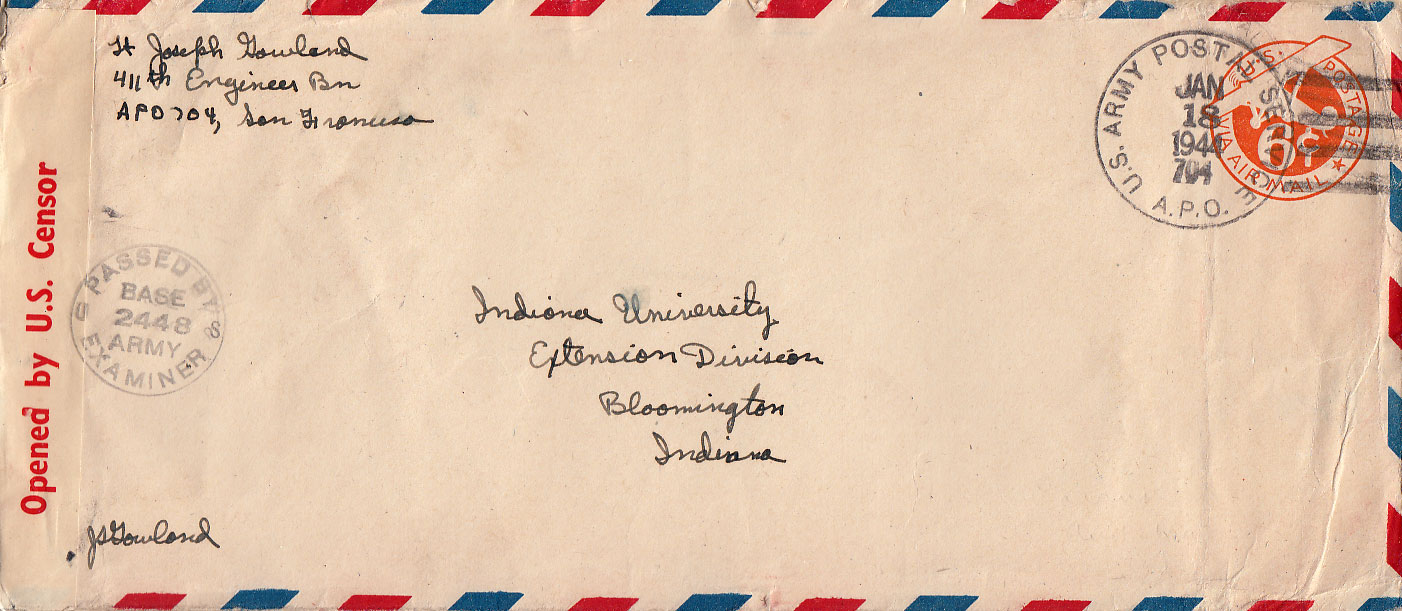 Lt Joseph Gowland
411th Engineer Bn
APO 704, San Francisco
U.S. ARMY POSTAL SERVICE
JAN
18
1944
704
A.P.O.
U.S. POSTAGE
6¢
VIA AIR MAIL
Opened by U.S. Censor
PASSED BY
BASE
2448
ARMY
EXAMINER
Indiana University
Extension Division
Bloomington
Indiana
JS Gowland